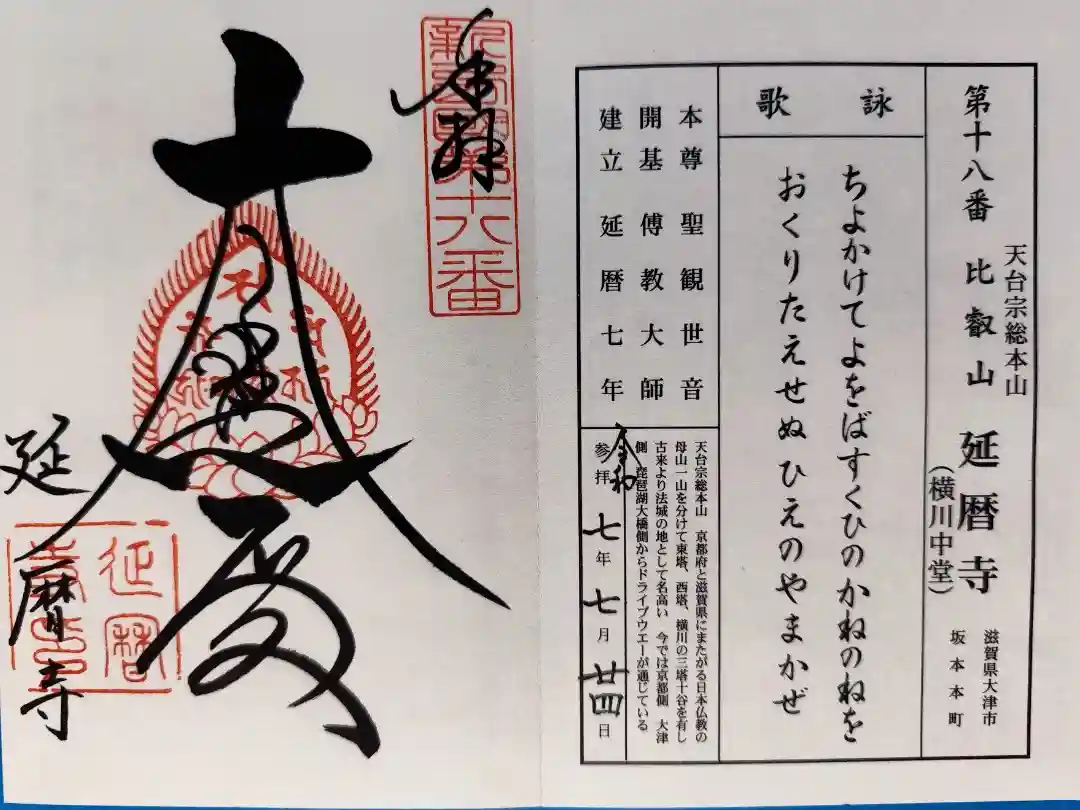 天台宗総本山
第十八番 比叡山 延暦寺
(横川中堂)
滋賀県大津市
坂本本町
詠歌
ちよかけてよをばすくひのかねのねを
おくりたえせぬひえのやまかぜ
本尊 聖観世音
開基 傅教大師
建立 延暦七年
天台宗総本山 京都府と滋賀県にまたがる日本仏教の
母山一山を分けて東塔、西塔、横川の三塔十谷を有し
古来より法城の地として名高い 今では京都側 大津
側 琵琶湖大橋側からドライブウエーが通じている
参拝 令和七年七月廿四日
奉拝
大悲殿
延暦寺